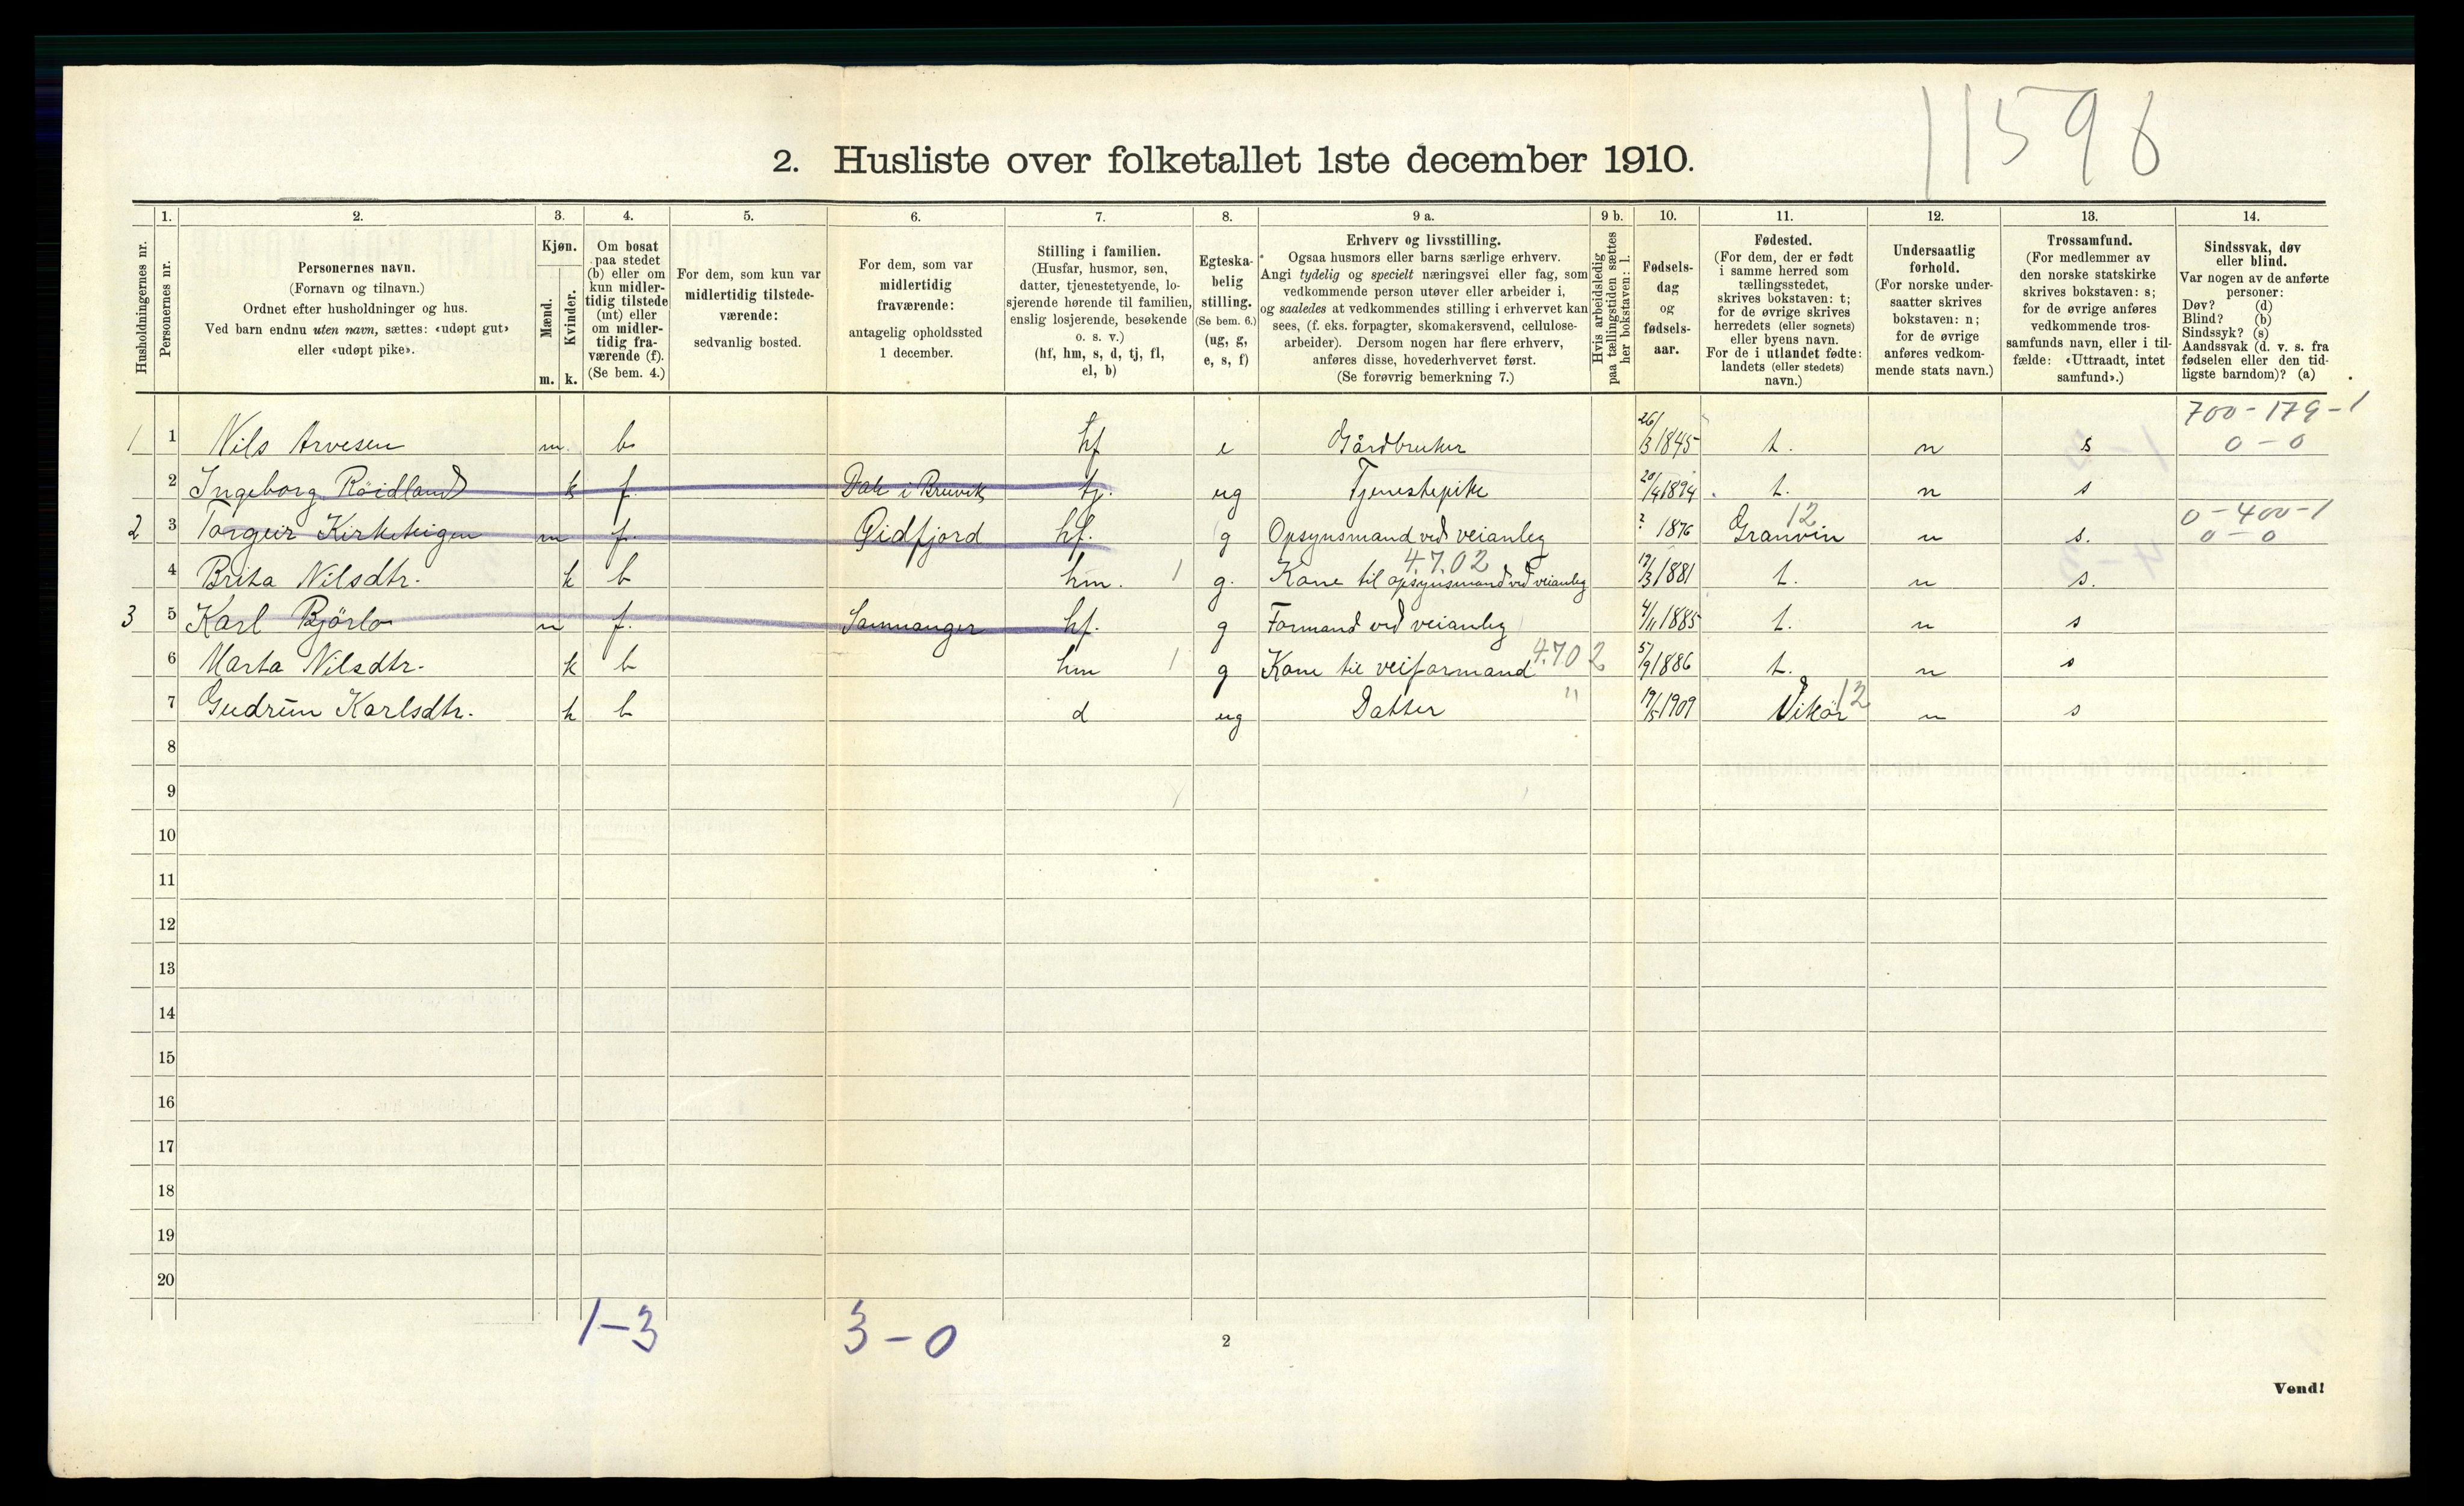 11596
2. Husliste over folketallet 1ste december 1910.
Husholdningernes nr.
1.
Personernes nr.
2.
Personernes navn.
(Fornavn og tilnavn.)
Ordnet efter husholdninger og hus.
Ved barn endnu uten navn, sættes: «udøpt gut»
eller «udøpt pike».
3.
Kjøn.
Mænd.
Kvinder.
m. k.
4.
Om bosat
paa stedet
(b) eller om
kun midler-
tidig tilstede
(mt) eller
om midler-
tidig fra-
værende (f).
(Se bem. 4.)
5.
For dem, som kun var
midlertidig tilstede-
værende:
sedvanlig bosted.
6.
For dem, som var
midlertidig
fraværende:
antagelig opholdssted
1 december.
7.
Stilling i familien.
(Husfar, husmor, søn,
datter, tjenestetyende, lo-
sjerende hørende til familien,
enslig losjerende, besøkende
o. s. v.)
(hf, hm, s, d, tj, fl,
el, b)
8.
Egteska-
belig
stilling.
(Se bem. 6.)
(ug, g,
e, s, f)
9 a.
Erhverv og livsstilling.
Ogsaa husmors eller barns særlige erhverv.
Angi tydelig og specielt næringsvei eller fag, som
vedkommende person utøver eller arbeider i,
og saaledes at vedkommendes stilling i erhvervet kan
sees, (f. eks. forpagter, skomakersvend, cellulose-
arbeider). Dersom nogen har flere erhverv,
anføres disse, hovederhvervet først.
(Se forøvrig bemerkning 7.)
9 b.
Hvis arbeidsledig
paa tællingstiden sættes
her bokstaven: l.
10.
Fødsels-
dag
og
fødsels-
aar.
11.
Fødested.
(For dem, der er født
i samme herred som
tællingsstedet,
skrives bokstaven: t;
for de øvrige skrives
herredets (eller sognets)
eller byens navn.
For de i utlandet fødte:
landets (eller stedets)
navn.)
12.
Undersaatlig
forhold.
(For norske under-
saatter skrives
bokstaven: n;
for de øvrige
anføres vedkom-
mende stats navn.)
13.
Trossamfund.
(For medlemmer av
den norske statskirke
skrives bokstaven: s;
for de øvrige anføres
vedkommende tros-
samfunds navn, eller i til-
fælde: «Uttraadt, intet
samfund».)
14.
Sindssvak, døv
eller blind.
Var nogen av de anførte
personer:
Døv? (d)
Blind? (b)
Sindssyk? (s)
Aandssvak (d. v. s. fra
fødselen eller den tid-
ligste barndom)? (a)
700-179-1
1 1 Nils Arvesen m. b hf e Gårdbruker 26/3 1845 t. n s 0-0
2 Ingeborg Röidland k f. Dale i Bruvik tj. ug Tjenestepike 20/4 1894 t. n s
12 0-400-1
2 3 Torgeir m f. Eidfjord hf. g Opsynsmand ved veianleg ? 1876 Granvin n s. 0-0
4.7.02
4 Brita Nilsdtr. k b hm. 1 g. Kone til opsynsmand ved veianleg 19/3 1881 t. n s.
3 5 Karl Björlo m f. Samnanger hf. g Formand ved veianleg 4/11 1885 t. n s
6 Marta Nilsdtr. k b hm 1 g Kone til veiformand 4.702 5/9 1886 t. n s
7 Gudrun Karlsdtr. k b d ug Datter " 19/5 1909 Vikör 12 n s
8
9
10
11
12
13
14
15
16
17
18
19
20
1-3 3-0
2
Vend!